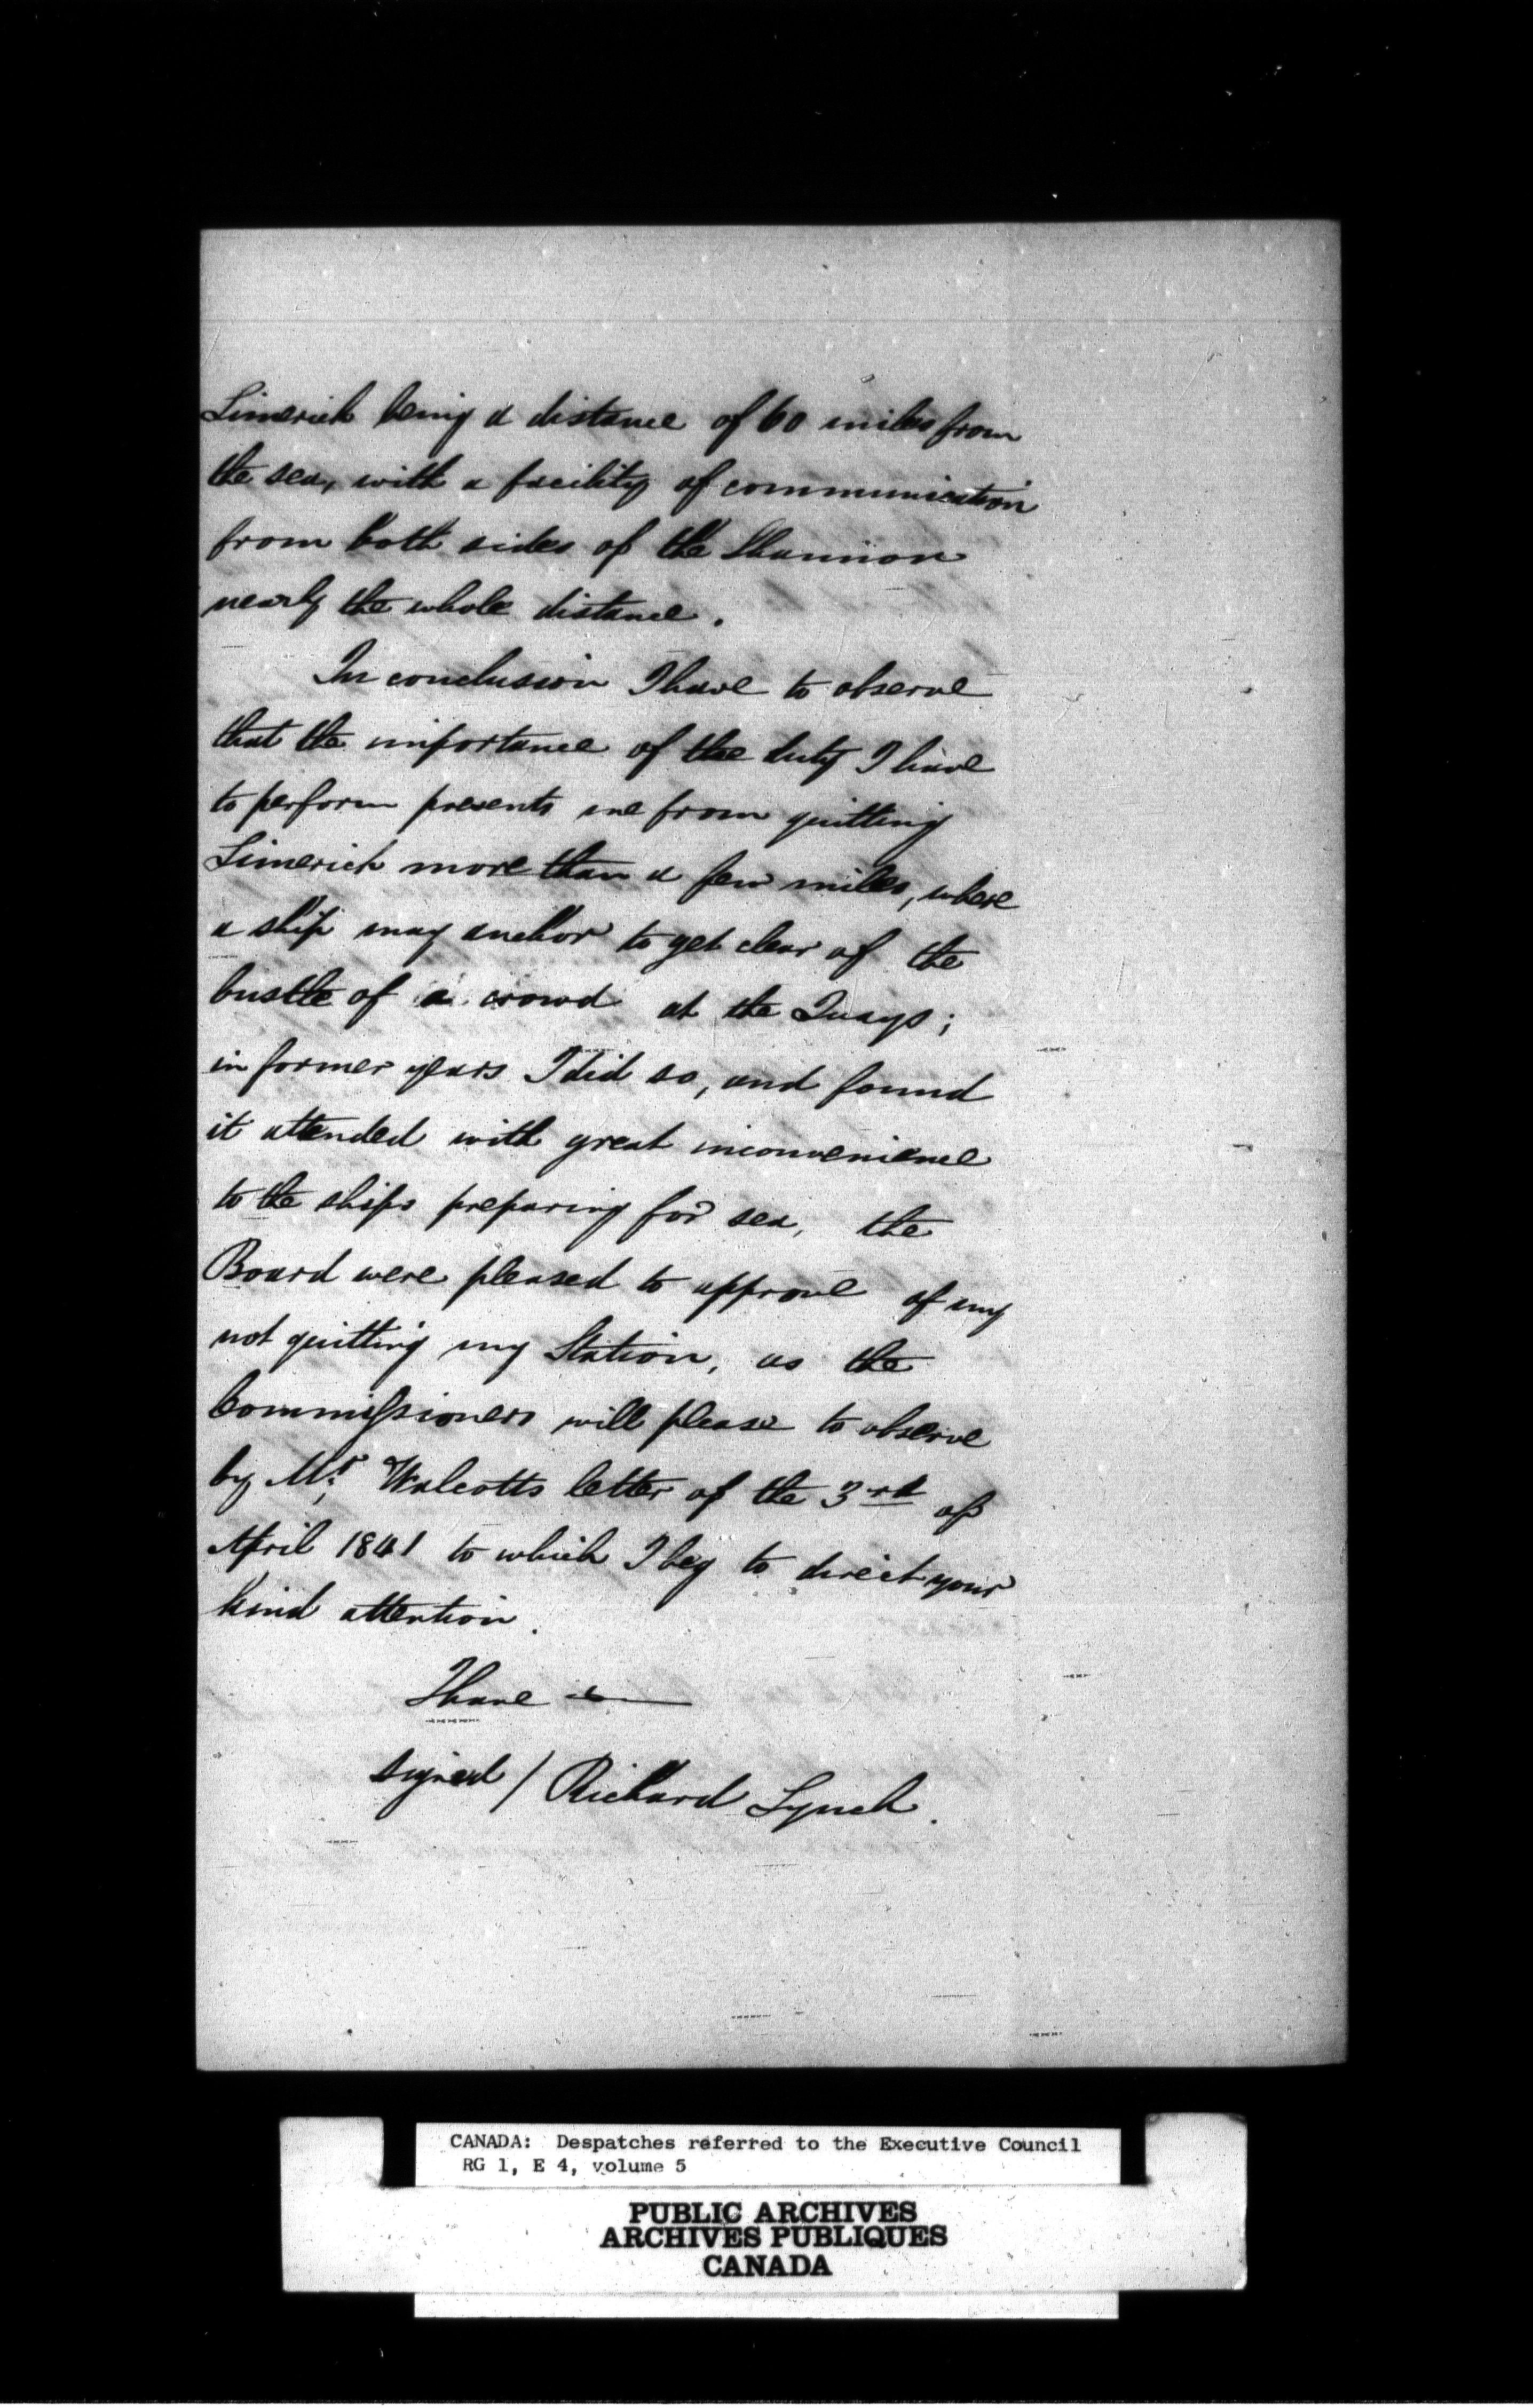 Limerick being a distance of 60 miles from
the sea, with a facility of communication
from both sides of the Shannon
nearly the whole distance.
In conclusion I have to observe
that the importance of the duty I have
to perform prevents me from quitting
Limerick more than a few miles, where
a ship may anchor to get clear of the
bustle of a crowd at the Quays;
in former years I did so, and found
it attended with great inconvenience
to the ships preparing for sea, the
Board were pleased to approve of my
not quitting my Station, as the
Commissioners will please to observe
by Mr. Walcotts letter of the 3rd of
April 1841 to which I beg to direct your
kind attention.
I have &c
signed / Richard Lynch.
CANADA: Despatches referred to the Executive Council
RG 1, E 4, volume 5
PUBLIC ARCHIVES
ARCHIVES PUBLIQUES
CANADA